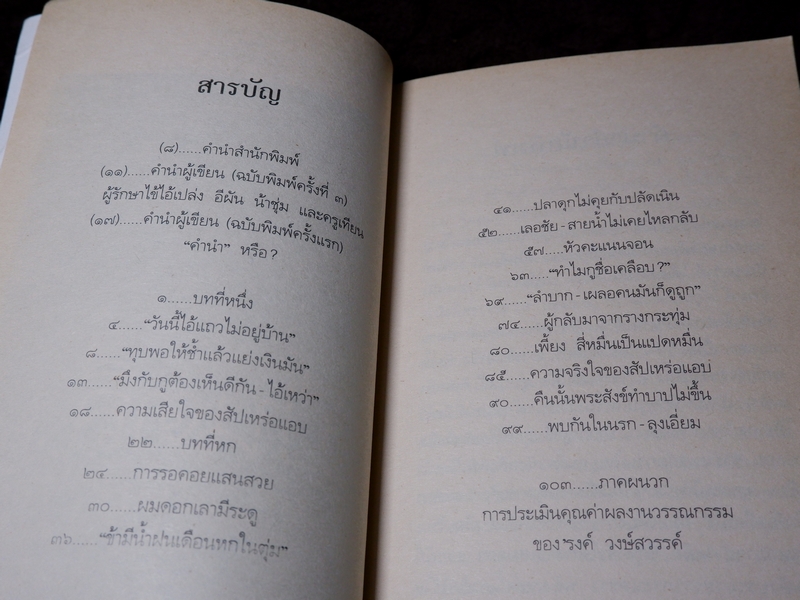 สารบัญ
(๘)......คำนำสำนักพิมพ์
(๑๑)......คำนำผู้เขียน (ฉบับพิมพ์ครั้งที่ ๓)
ผู้รักษาไข้ไอ้เปล่ง อีผัน น้าชุ่ม และครูเทียน
(๑๗)......คำนำผู้เขียน (ฉบับพิมพ์ครั้งแรก)
“คำนำ” หรือ?
๑.....บทที่หนึ่ง
๔......“วันนี้ไอ้แถวไม่อยู่บ้าน”
๘......“ทุบพอให้ช้ำแล้วแย่งเงินมัน”
๑๓......“มึงกับกูต้องเห็นดีกัน - ไอ้เหว่า”
๑๘......ความเสียใจของสัปเหร่อแอบ
๒๒......บทที่หก
๒๔......การรอคอยแสนสวย
๓๐......ผมดอกเลามีระดู
๓๖......“ข้ามีน้ำฝนเดือนหกในตุ่ม”
๔๑......ปลาดุกไม่คุยกับปลัดเนิน
๕๒......เลอชัย - สายน้ำไม่เคยไหลกลับ
๕๗.....หัวคะแนนจอน
๖๓.....“ทำไมกูชื่อเคลือบ?”
๖๙......“ลำบาก - เผลอคนมันก็ดูถูก”
๗๔......ผู้กลับมาจากรางกระทุ่ม
๘๐......เพี้ยง สี่หมื่นเป็นแปดหมื่น
๘๕......ความจริงใจของสัปเหร่อแอบ
๙๐......คืนนั้นพระสังข์ทำบาปไม่ขึ้น
๙๙......พบกันในนรก - ลุงเอี่ยม
๑๐๓......ภาคผนวก
การประเมินคุณค่าผลงานวรรณกรรม
ของ ’รงค์ วงษ์สวรรค์